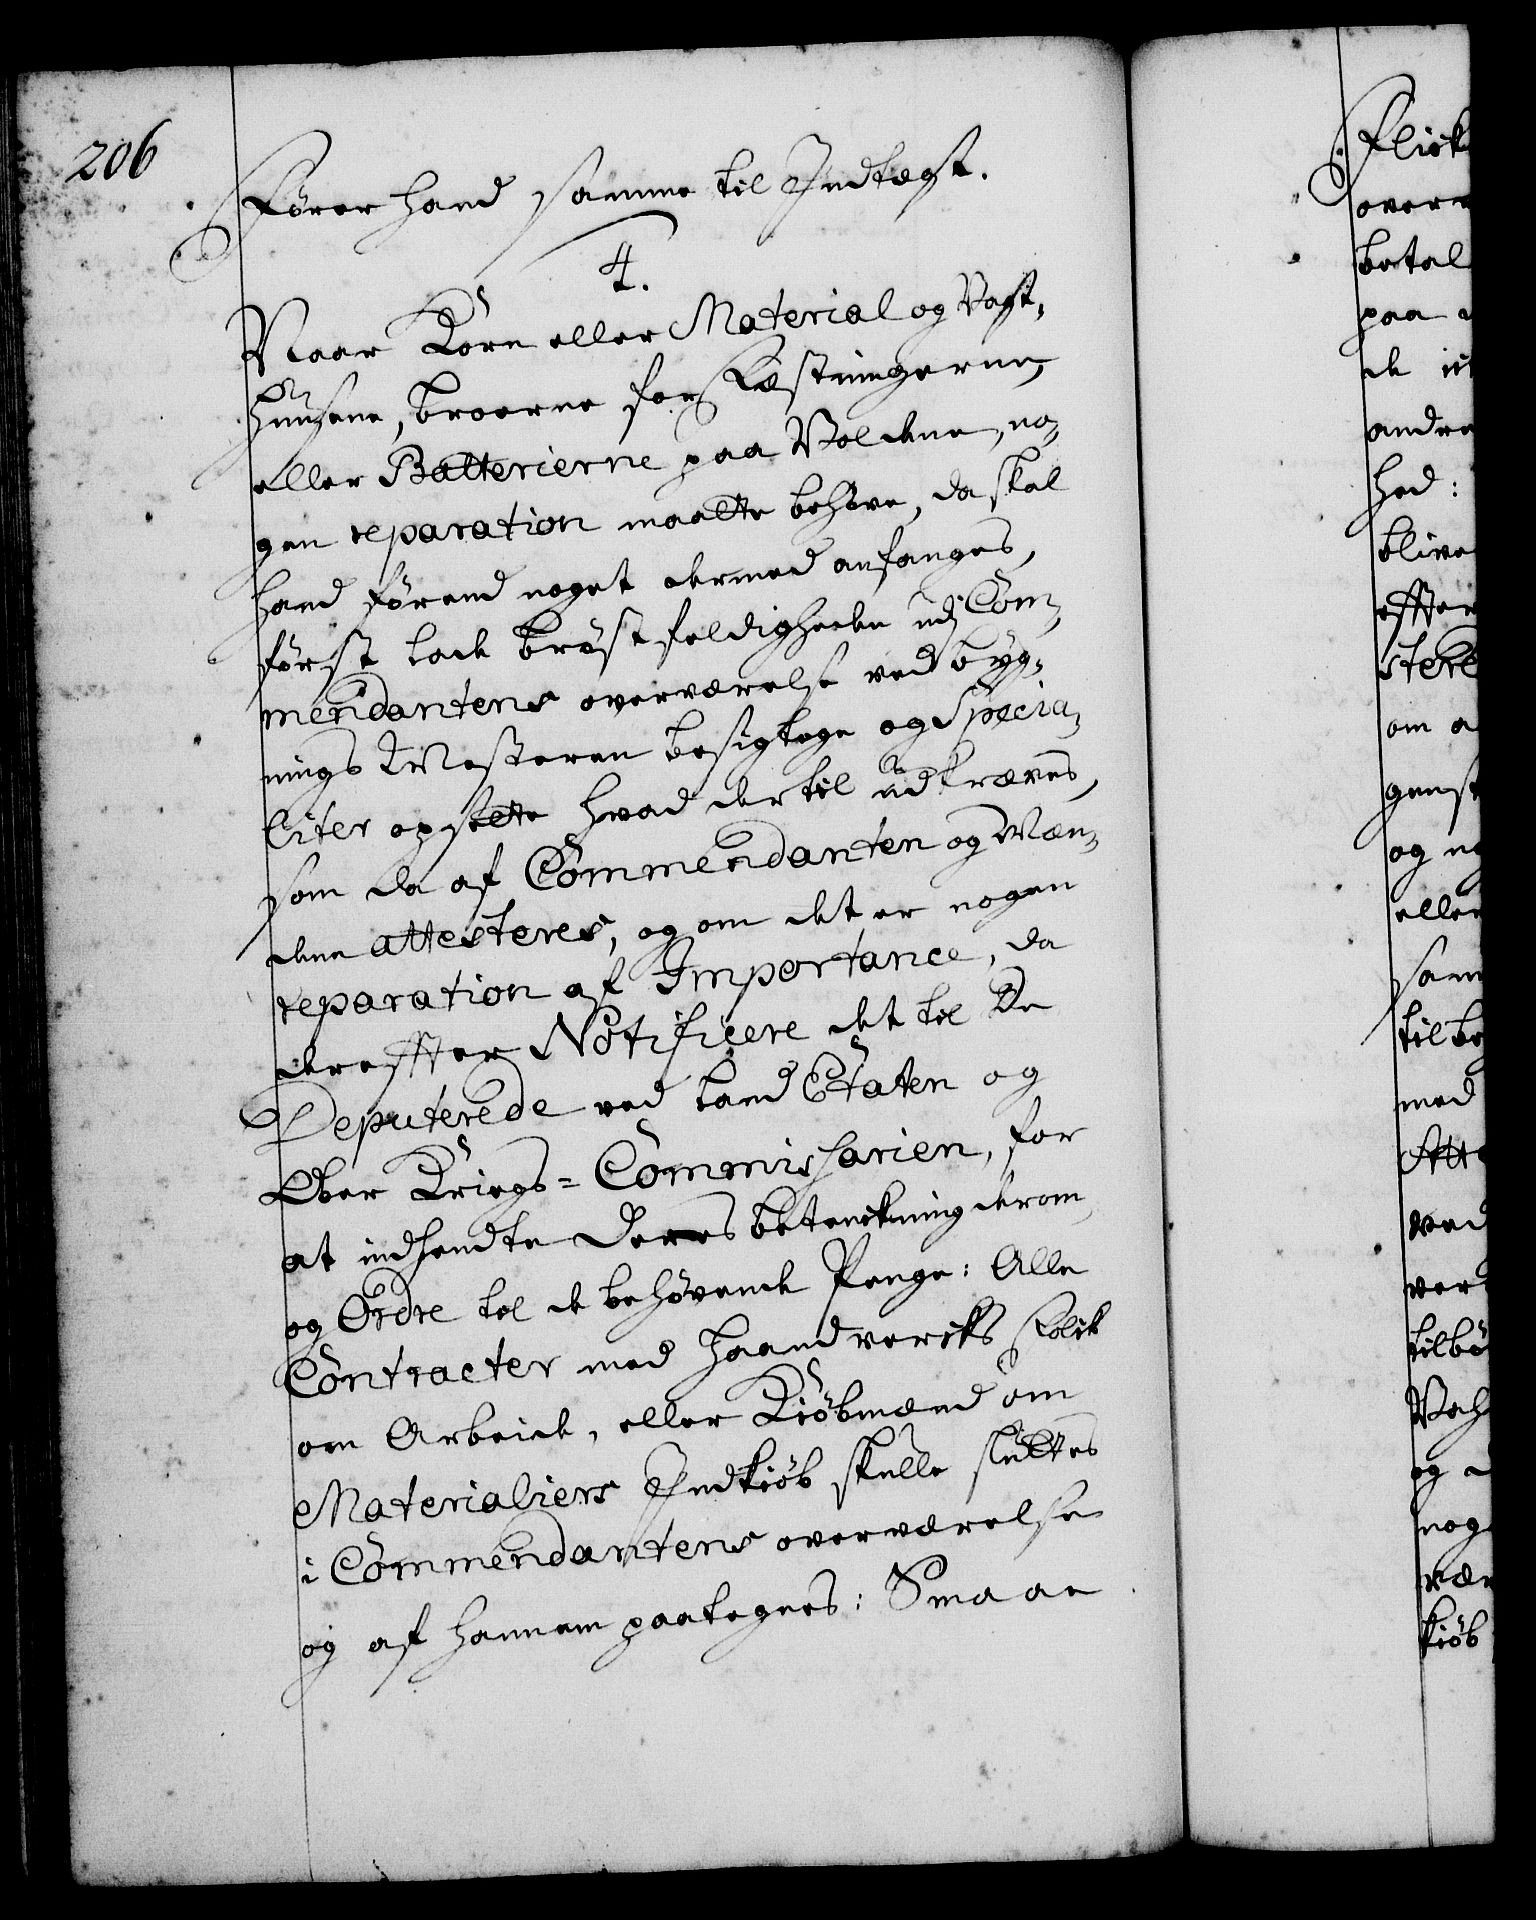 206
Fører hand samme til Indtægt.
4.
Naar Korn eller Material og Vagt-
huusene, broerne for Fæstningerne,
eller Batterierne paa Voldene, no-
gen reparation maatte behöve, da skal
hand förend noget dermed anfanges,
først lade bröstfeldigheden udj Com-
mendantens overværelse ved byg-
nings Mesteren besigtege og Specia-
liter opsette hvad dertil udkræves,
som da af Commendanten og Mæn-
dene attesteres, og om det er nogen
reparation af Importance, da
dereffter Notificere det til De
Deputerede ved land Etaten og
Ober Kriegs-Commissarien, for
at indhendte Deres betenkning derom,
og Ordre til de behøvende Penge: Alle
Contracter med Haandverks Folk
om Arbeide, eller Kiöbmænd om
Materialiers Indkiöb skulle sluttes
i Commendantens overværelse
og af hannem paategnes: Smaae
Flick
overv
betal
paa
de
andre
hed:
blive
effter
stere
om a
genst
og no
eller
sam
til be
med
Atte
ved
ver
tilbö
Vah
og
nog
vær
kiöb